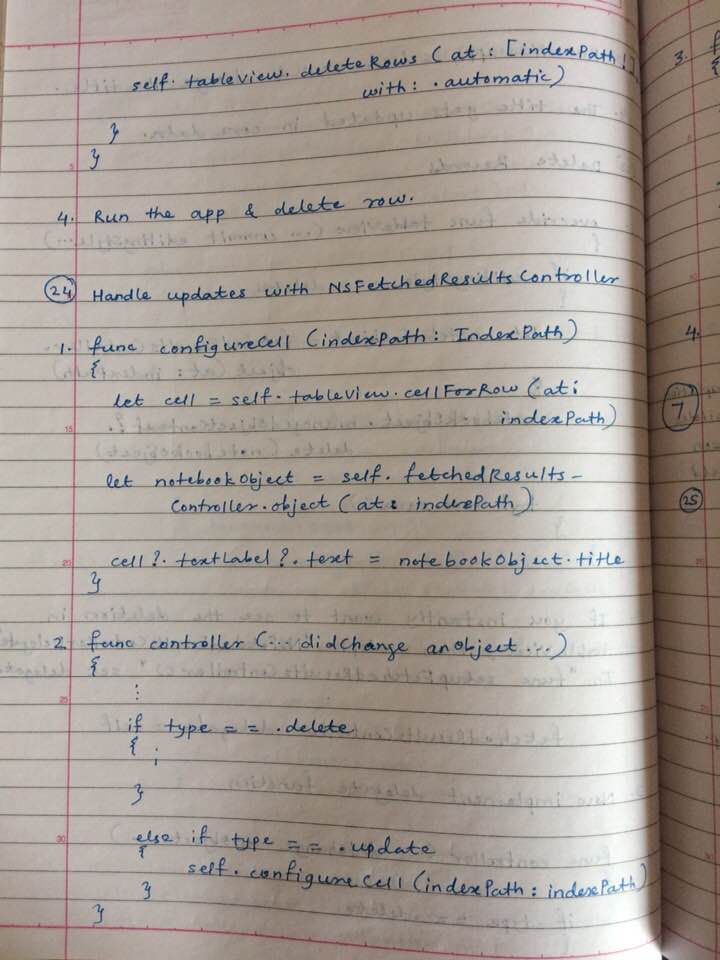 self.tableView.deleteRows (at: [indexPath!],
with: .automatic)
}
}
4. Run the app & delete row.
24 Handle updates with NSFetchedResultsController
1. func configureCell (indexPath: IndexPath)
{
let cell = self.tableView.cellForRow (at:
indexPath)
let notebookObject = self.fetchedResults-
Controller.object (at: indexPath)
cell?.textLabel?.text = notebookObject.title
}
2. func controller (... didChange anObject ...)
{
⋮
if type == .delete
{ ⋮
}
else if type == .update
{
self.configureCell (indexPath: indexPath)
}
}
3.
{
4.
7
25